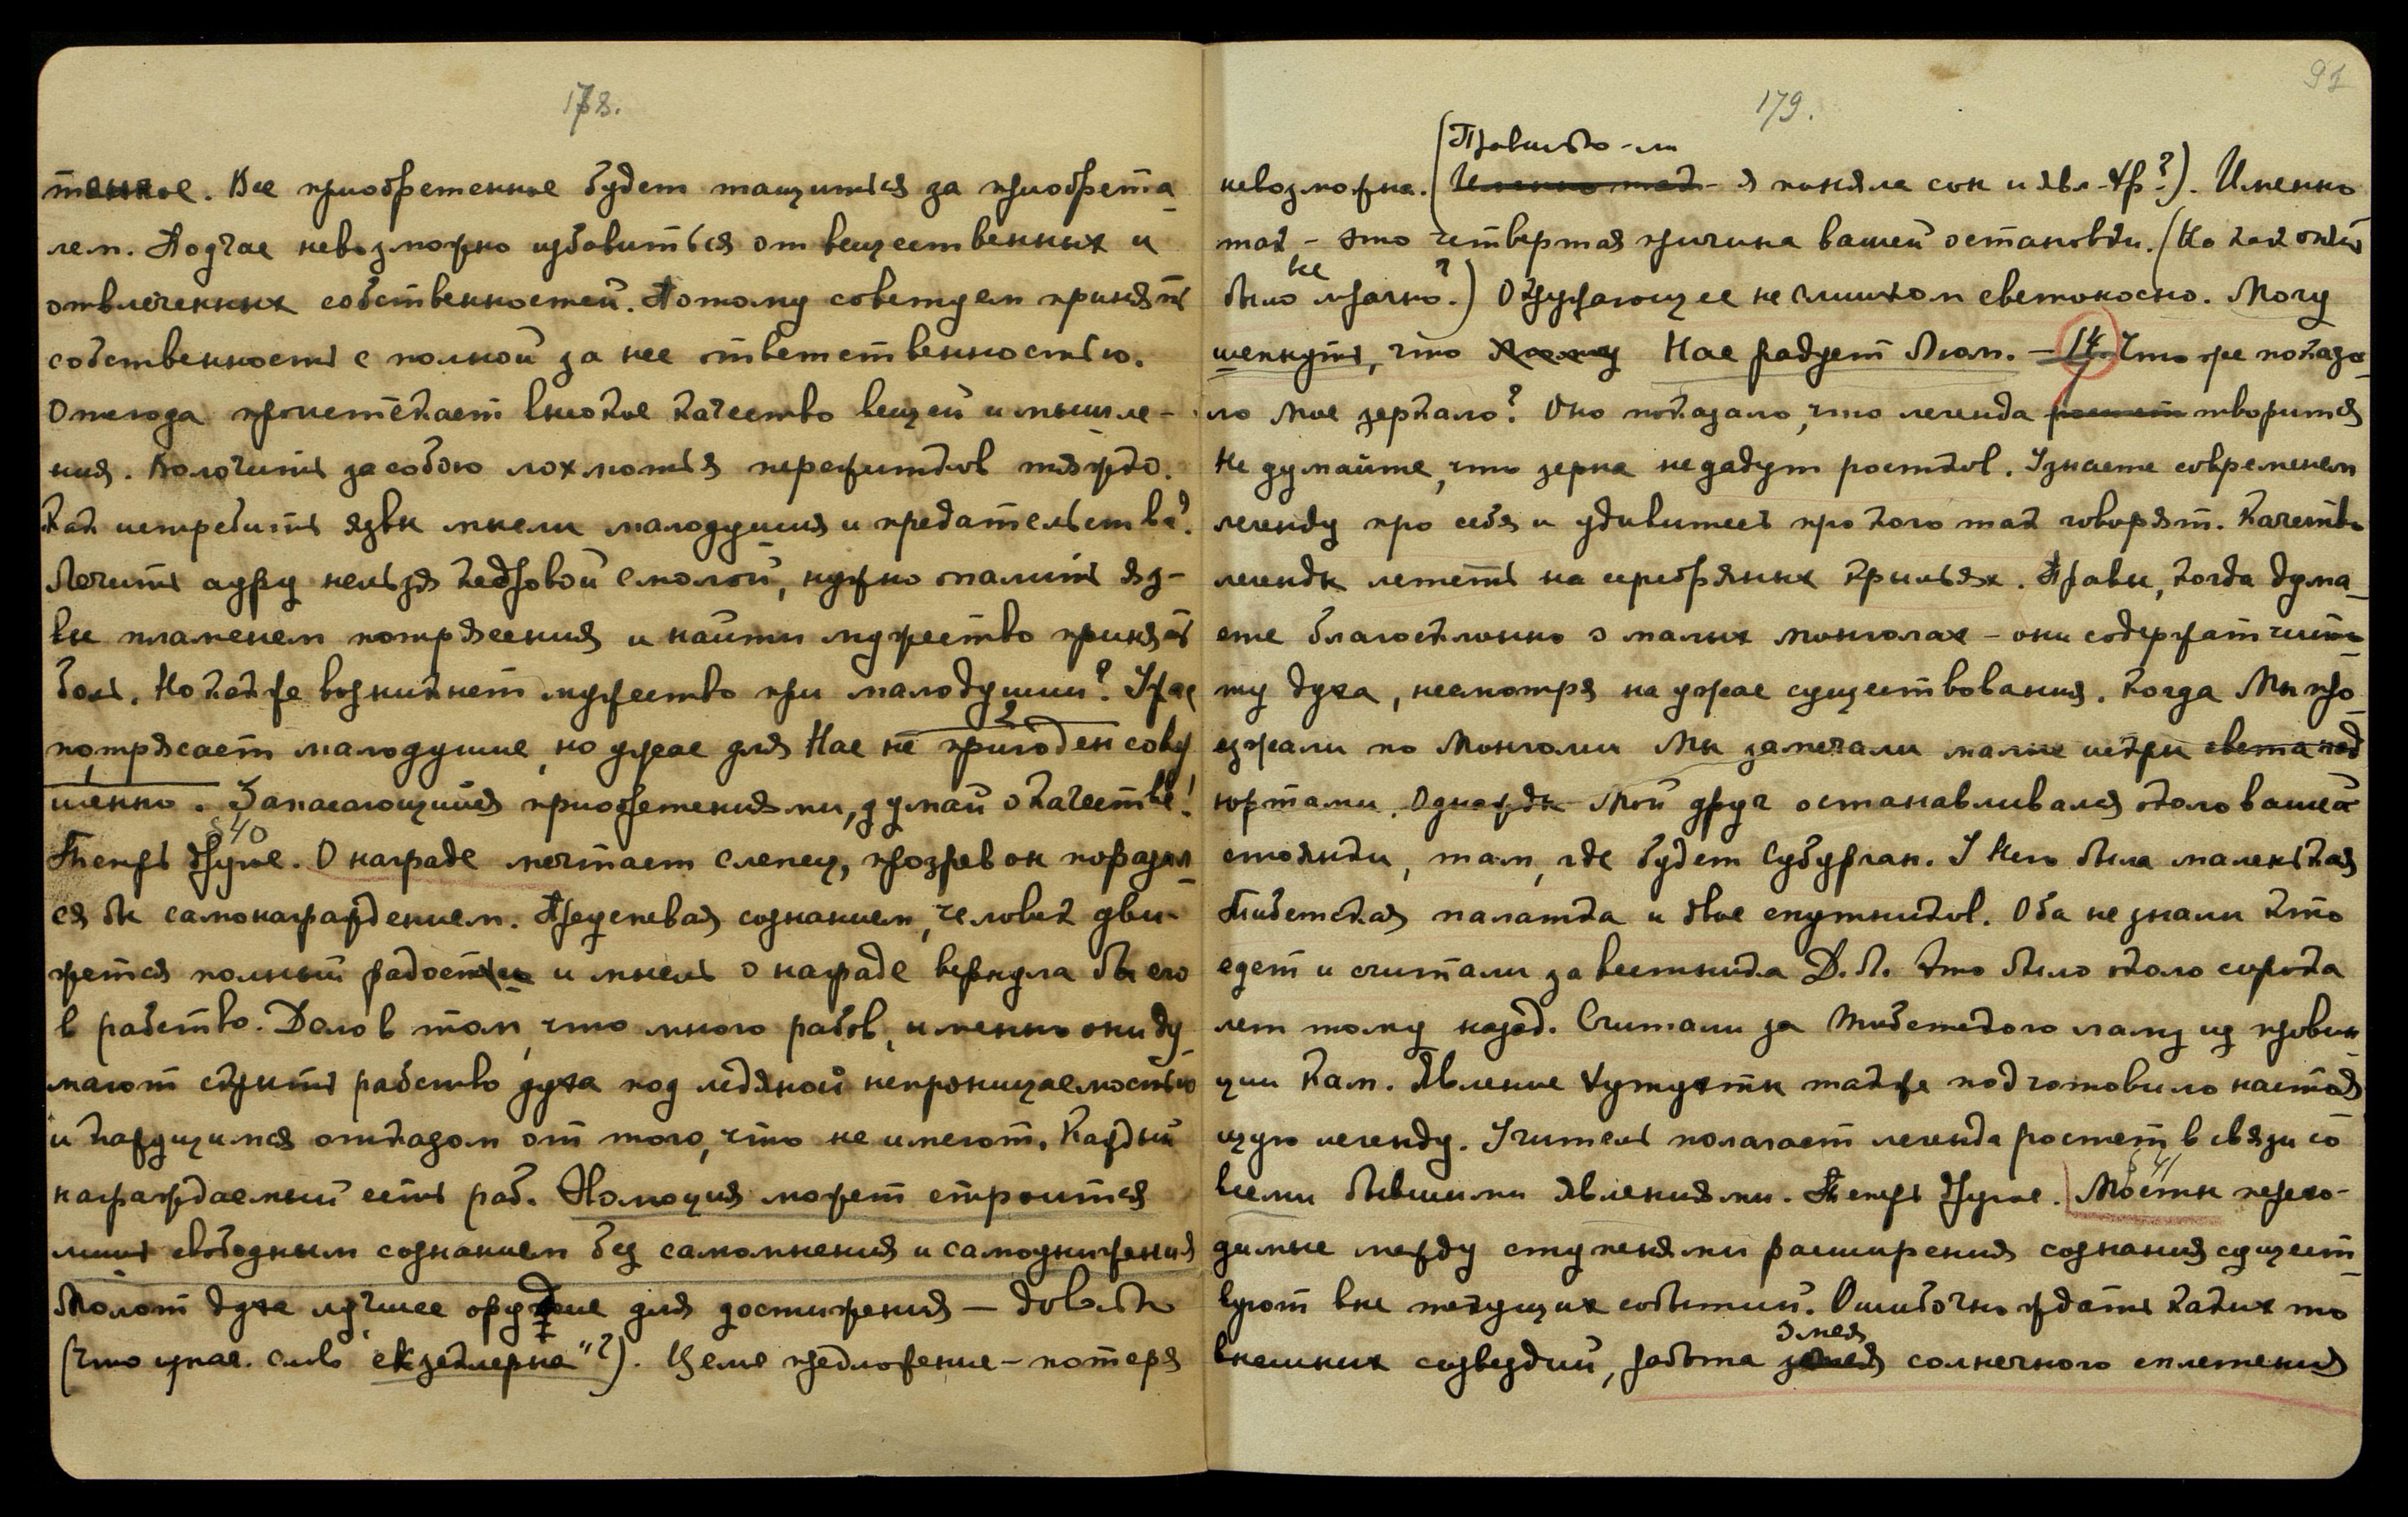 178.
тенное. Все приобретенное будет тащиться за приобрета-
лем. Подчас невозможно избавиться от вещественных и
отвлеченных собственностей. Потому советуем принять
собственность с полной за нее ответственностью.
Отсюда проистекает высокое качество вещей и мышле-
ния. Волочить за собою лохмотья пережитков тяжко.
Как истребить язвы мысли малодушия и предательства?
Лечить ауру нельзя кедровой смолой, нужно опалить яз-
вы пламенем потрясения и найти мужество принять
боль. Но как же возникнет мужество при малодушии? Ужас
потрясает малодушие, но ужас для Нас не пригоден совер
шенно. Запасающийся приобретениями, думай о качестве!
§40
Теперь другое. О награде мечтает слепец, прозрев он поразил-
ся бы самонаграждением. Преуспевая сознанием, человек дви-
жется полный радости и мысль о награде вернула бы его
в рабство. Дело в том, что много рабов, именно они ду-
мают скрыть рабство духа под ледяной непроницаемостью
и кажущимся отказом от того, что не имеют. Каждый
награждаемый есть раб. Эволюция может строиться
лишь свободным сознанием без самомнения и самоунижения
Молот духа лучшее орудие для достижения — довольно
(что знач. слово „екзеклерна"?). Целое предложение - потеря
91
179.
(Правильно-ли
невозможна. (Именно так - я поняла сон и явл. Хр?). Именно
так - это четвертая причина вашей остановки. (Но как опыт
не
было мрачно?) Окружающее не слишком светоносно. Могу
шепнуть, что Нас радует Люм. - 14. Что же показа-
ло мое зеркало? Оно показало, что легенда растет творится
Не думайте, что зерна не дадут ростков. Узнаете современем
легенду про себя и удивитесь про кого так говорят. Качество
легенды лететь на серебряных крыльях. Правы, когда дума-
ете благосклонно о малых монголах - они содержат чисто-
ту духа, несмотря на ужас существования. Когда Мы про-
езжали по Монголии Мы замечали малые искры света над
юртами. Однажды Мой друг останавливался около вашей
стоянки, там, где будет Субурган. У Него была маленькая
Тибетская палатка и двое спутников. Оба не знали кто
едет и считали за вестника Д. Л. Это было около сорока
лет тому назад. Считали за Тибетского ламу из провин
ции Кам. Явление Хутухты также подготовило настоя
щую легенду. Учитель полагает легенда растет в связи со
всеми бывшими явлениями. Теперь другое. §41 Мосты перехо-
димые между ступенями расширения сознания сущест-
вуют вне текущих событий. Ошибочно ждать каких то
змея
внешних созвездий, работа змея солнечного сплетения